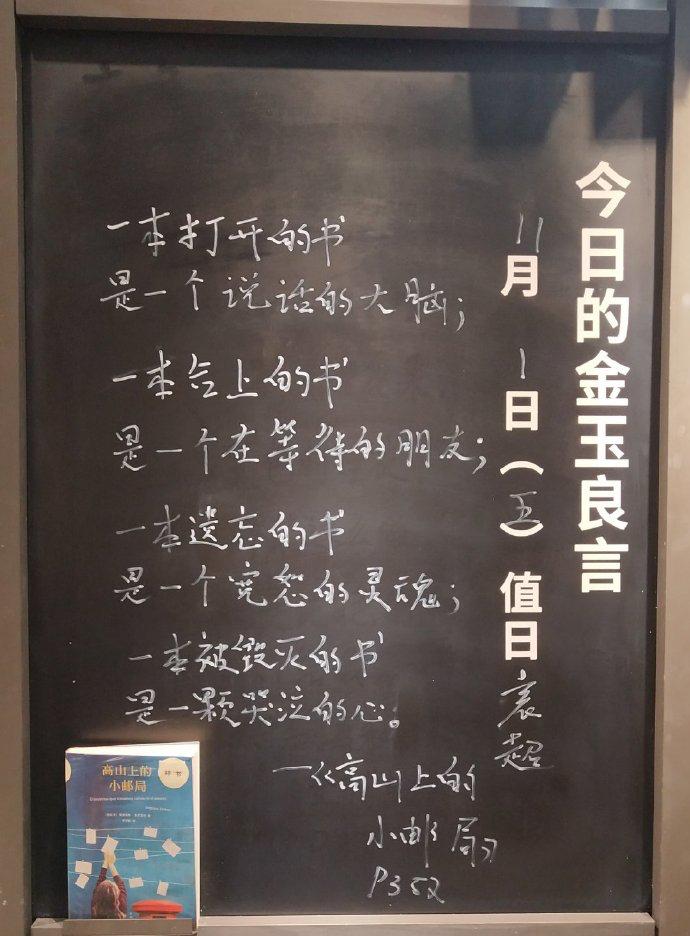 今日的金玉良言
11月1日（五）值日袁超
一本打开的书
是一个说话的大脑；
一本合上的书
是一个在等待的朋友；
一本遗忘的书
是一个宽恕的灵魂；
一本被毁灭的书
是一颗哭泣的心。
—《高山上的
小邮局》
P352
高山上的
小邮局
样书